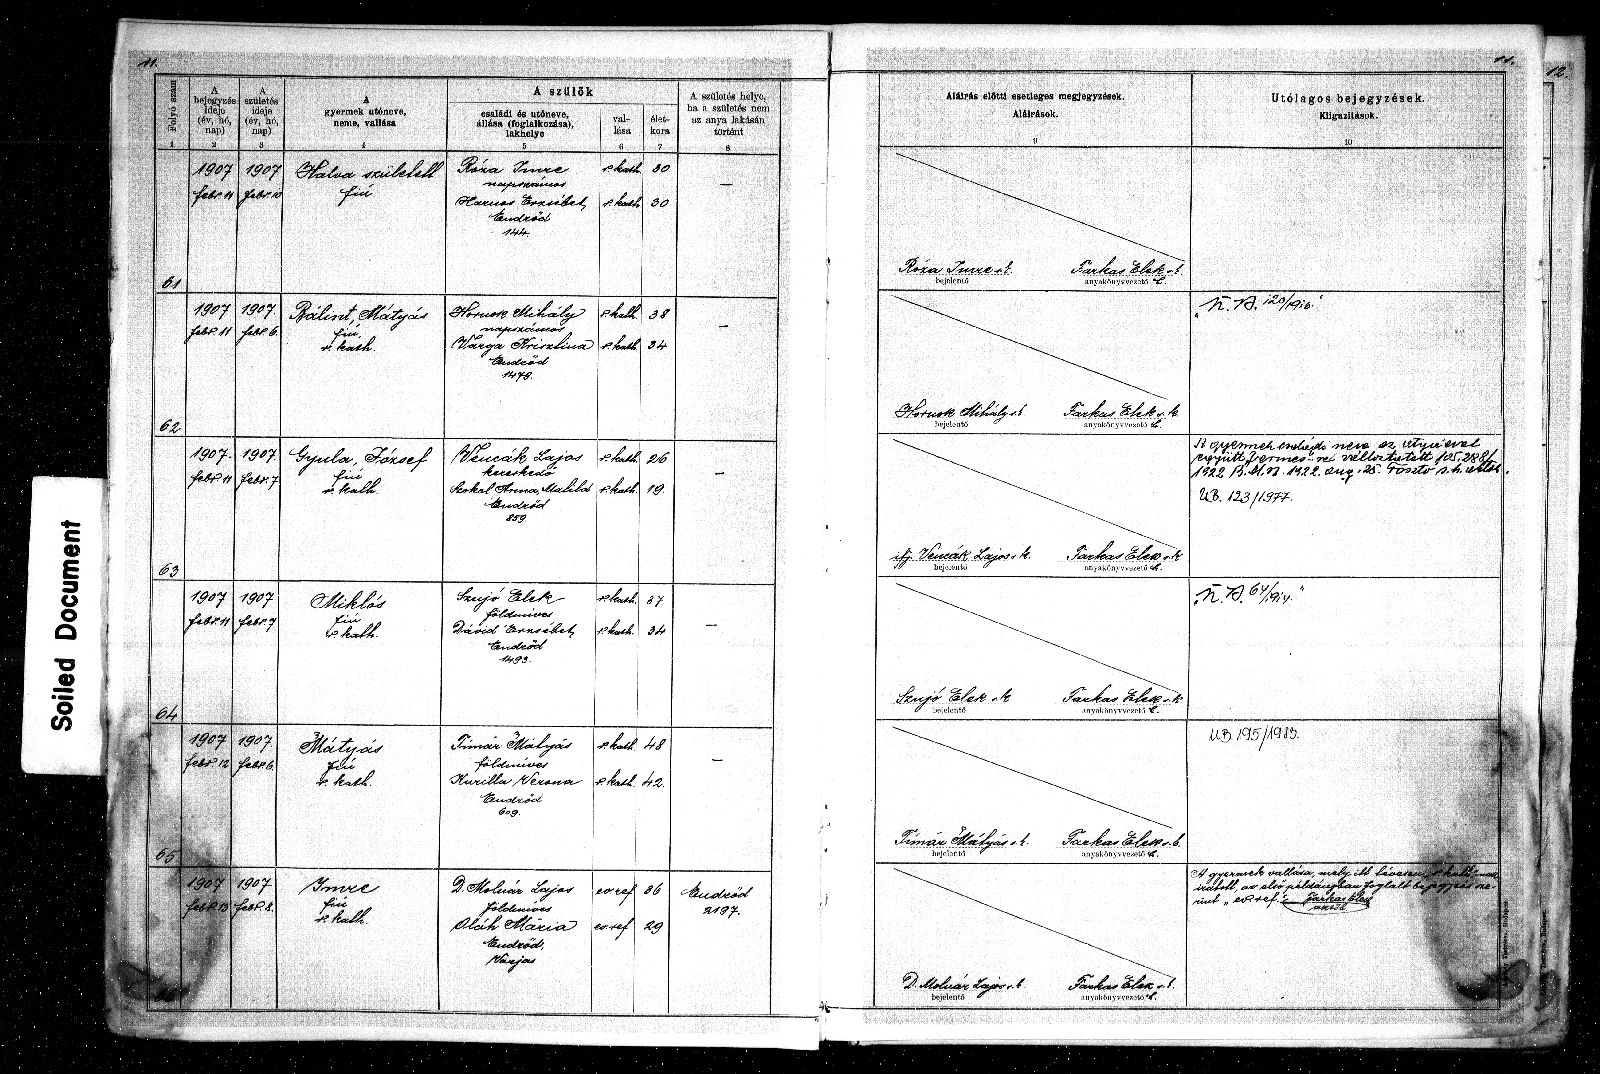 11.
Folyó szám
A bejegyzés ideje (év, hó, nap)
A születés ideje (év, hó, nap)
A gyermek utóneve, neme, vallása
A szülők
családi és utóneve, állása (foglalkozása), lakhelye
val- lása
élet- kora
A születés helye, ha a születés nem az anya lakásán történt
1 2 3 4 5 6 7 8
61
1907 febr. 11
1907 febr. 10
Halva született
fiú
Róza Imre
napszámos
Harnos Erzsébet,
Endrőd
144.
r. kath. 30
r. kath. 30
—
62
1907 febr. 11
1907. febr. 6.
Bálint, Mátyás
fiú
r. kath.
Hornok Mihály
napszámos
Varga Krisztina
Endrőd
1478.
r. kath. 38
r. kath. 34
—
63
1907. febr. 11
1907. febr. 7
Gyula, József
fiú
r. kath.
Vencák Lajos
kereskedő
Szokol Anna, Matild
Endrőd
859
r. kath. 26
r. kath. 19.
—
64
1907 febr. 11
1907 febr. 7
Miklós
fiú
r. kath.
Szujó Elek
földmíves
Dávid Erzsébet,
Endrőd
1493.
r. kath. 37
r. kath. 34
—
65
1907 febr. 12
1907 febr. 6.
Mátyás
fiú
r. kath.
Tímár Mátyás
földmíves
Kurilla Verona
Endrőd
609.
r. kath. 48
r. kath. 42.
—
1907 febr. 13
1907 febr. 8.
Imre
fiú
r. kath.
D. Molnár Lajos
földmíves
Oláh Mária
Endrőd,
ev. ref 36
ev. ref 29
Endrőd
2197.
Soiled Document
11.
12.
Aláírás előtti esetleges megjegyzések.
Aláírások.
9
Utólagos bejegyzések.
Kiigazítások.
10
Róza Imre s. k.
bejelentő
Farkas Elek s. k.
anyakönyvvezető
"N. A. 120/916."
Hornok Mihály s. k.
bejelentő
Farkas Elek s. k.
anyakönyvvezető
A gyermek családi neve az atyjáéval
együtt "Vermes"-re változtatott 105.288/
1922 B. M. sz. 1922. aug. 25.
UB. 123/1977.
ifj. Vencák Lajos s. k.
bejelentő
Farkas Elek s. k.
anyakönyvvezető
"N. A. 64/914."
Szujó Elek s. k.
bejelentő
Farkas Elek s. k.
anyakönyvvezető
UB. 195/1983.
Tímár Mátyás s. k.
bejelentő
Farkas Elek s. k.
anyakönyvvezető
A gyermek vallása, mely itt tévesen r. kath.-nak
iratott, az első példányban foglalt bejegyzés sze-
rint "ev. ref." Farkas Elek
D. Molnár Lajos s. k.
bejelentő
Farkas Elek s. k.
anyakönyvvezető